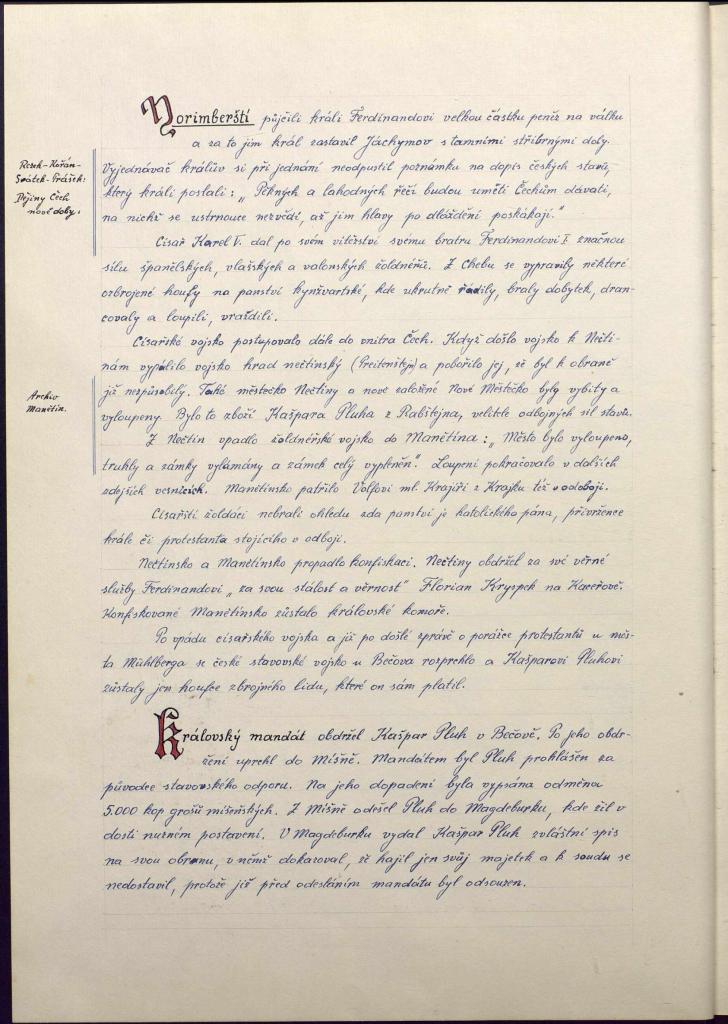 Norimberští půjčili králi Ferdinandovi velkou částku peněz na válku
a za to jim král zastavil Jáchymov s tamními stříbrnými doly.
Rezek-Kořán-
Svátek-Prášek:
Dějiny Čech
nové doby.
Vyjednávač králův si při jednání neodpustil poznámku na dopis českých stavů,
který králi poslali: „Pěkných a lahodných řečí budou uměti Čechům dávati,
na nichž se ustrnouce nezvědí, až jim hlavy po dláždění poskákají."
Císař Karel V. dal po svém vítězství svému bratru Ferdinandovi I značnou
sílu španělských, vlašských a valonských žoldnéřů. Z Chebu se vypravily některé
ozbrojené houfy na panství kynžvartské, kde ukrutně řádily, braly dobytek, dran-
covaly a loupili, vraždili.
Císařské vojsko postupovalo dále do vnitra Čech. Když došlo vojsko k Nečti-
nám vypálilo vojsko hrad nečtinský (Preitenštejn) a pobořilo jej, že byl k obraně
již nezpůsobilý. Také městečko Nečtiny a nově založené Nové Městečko byly vybity a
vyloupeny. Bylo to zboží Kašpara Pluha z Rabštejna, velitele odbojných sil stavů.
Archiv
Manětín.
Z Nečtin vpadlo žoldnéřské vojsko do Manětína: „Město bylo vyloupeno,
truhly a zámky vylámány a zámek celý vypleněn". Loupení pokračovalo v dalších
zdejších vesnicích. Manětínsko patřilo Volfovi ml. Krajíři z Krajku též v odboji.
Císařští žoldáci nebrali ohledu zda panství je katolického pána, přívržence
krále či protestanta stojícího v odboji.
Nečtinsko a Manětínsko propadlo konfiskaci. Nečtiny obdržel za své věrné
služby Ferdinandovi „za svou stálost a věrnost" Florian Kryspek na Kaceřově.
Konfiskované Manětínsko zůstalo královské komoře.
Po vpádu císařského vojska a již po došlé zprávě o porážce protestantů u měs-
ta Mühlberga se české stavovské vojsko u Bečova rozprchlo a Kašparovi Pluhovi
zůstaly jen houfce zbrojného lidu, které on sám platil.
Královský mandát obdržel Kašpar Pluh v Bečově. Po jeho obdr-
žení uprchl do Míšně. Mandátem byl Pluh prohlášen za
původce stavovského odporu. Na jeho dopadení byla vypsána odměna
5.000 kop grošů míšeňských. Z Míšně odešel Pluh do Magdeburku, kde žil v
dosti nuzném postavení. V Magdeburku vydal Kašpar Pluh zvláštní spis
na svou obranu, v němž dokazoval, že hajil jen svůj majetek a k soudu se
nedostavil, protože již před odesláním mandátu byl odsouzen.